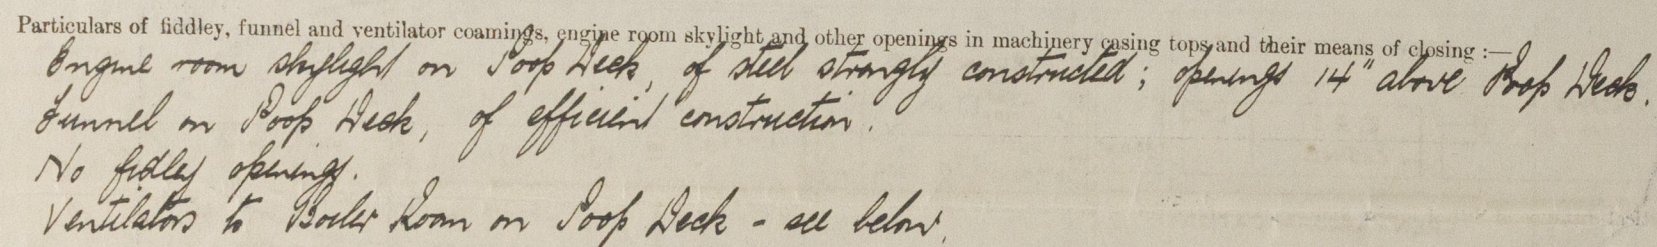 Particulars of fiddley, funnel and ventilator coamings, engine room skylight and other openings in machinery casing tops and their means of closing :—
Engine room skylight on Poop Deck, of steel strongly constructed; openings 14" above Poop Deck.
Funnel on Poop Deck, of efficient construction.
No fidley openings.
Ventilators to Boiler Room on Poop Deck - see below.